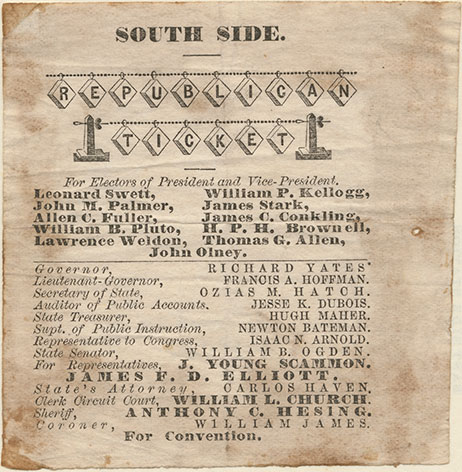 SOUTH SIDE.
REPUBLICAN
TICKET
For Electors of President and Vice-President.
Leonard Swett, William P. Kellogg,
John M. Palmer, James Stark,
Allen C. Fuller, James C. Conkling,
William B. Pluto, H. P. H. Brownell,
Lawrence Weldon, Thomas G. Allen,
John Olney.
Governor, RICHARD YATES
Lieutenant-Governor, FRANCIS A. HOFFMAN.
Secretary of State, OZIAS M. HATCH.
Auditor of Public Accounts. JESSE K. DUBOIS.
State Treasurer, HUGH MAHER.
Supt. of Public Instruction, NEWTON BATEMAN.
Representative to Congress, ISAAC N. ARNOLD.
State Senator, WILLIAM B. OGDEN.
For Representatives, J. YOUNG SCAMMON.
JAMES F. D. ELLIOTT.
State's Attorney, CARLOS HAVEN.
Clerk Circuit Court, WILLIAM L. CHURCH.
Sheriff, ANTHONY C. HESING.
Coroner, WILLIAM JAMES.
For Convention.